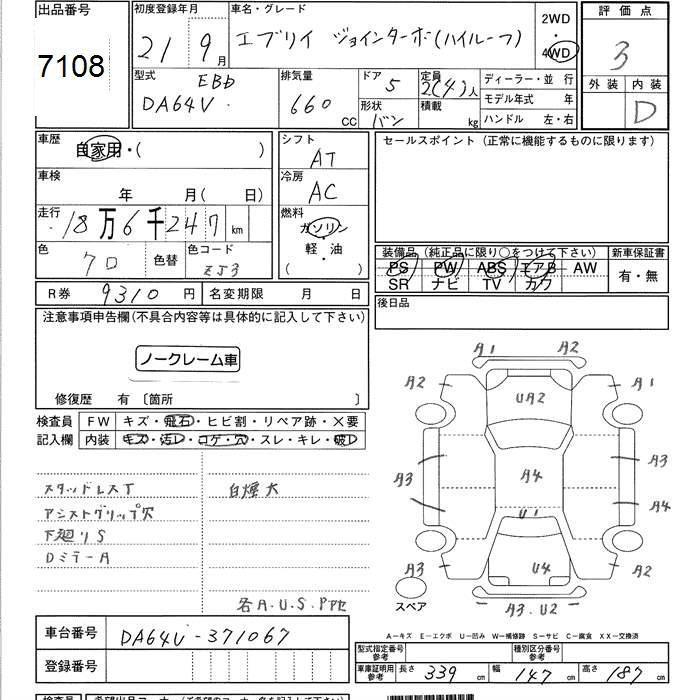 出品番号
7108
初度登録年月
21年 9月
車名・グレード
エブリイ ジョインターボ(ハイルーフ)
2WD
・
4WD
評価点
3
外装 内装
D
型式
EBD
DA64V
排気量
660 cc
ドア 5
形状 バン
定員 2(4)人
積載 kg
ディーラー・並 行
モデル年式 年
ハンドル 左・右
車歴
自家用・( )
車検
年 月(日)
走行
18万6千247km
色
クロ
色替
色コード
ZJ3
シフト
AT
冷房
AC
燃料
ガソリン
軽・油
( )
セールスポイント (正常に機能するものに限ります)
装備品 (純正品に限り○をつけて下さい)
PS PW ABS エアB AW
SR ナビ TV カワ
新車保証書
有・無
後日品
R券 9310円
名変期限 月 日
注意事項申告欄(不具合内容等は具体的に記入して下さい)
ノークレーム車
修復歴 有 〔箇所 〕
検査員
記入欄
FW キズ・飛石・ヒビ割・リペア跡・X要
内装 キズ・汚レ・コゲ・穴・スレ・キレ・破レ
スタッドレスT
アシストグリップ穴
下廻りS
DミラーA
白煙大
各A.U.S.P
A1 A2
A2 A1
UA2
A3 A4 A3
U1 A4
U4
A3 A2
スペア
A3.U2
A−キズ E−エクボ U−凹み W−補修跡 S−サビ C−腐食 XX−交換済
車台番号
DA64V-371067
登録番号
型式指定番号
参考
種別区分番号
参考
車庫証明用
参考
長さ 339cm
幅 147cm
高さ 187cm